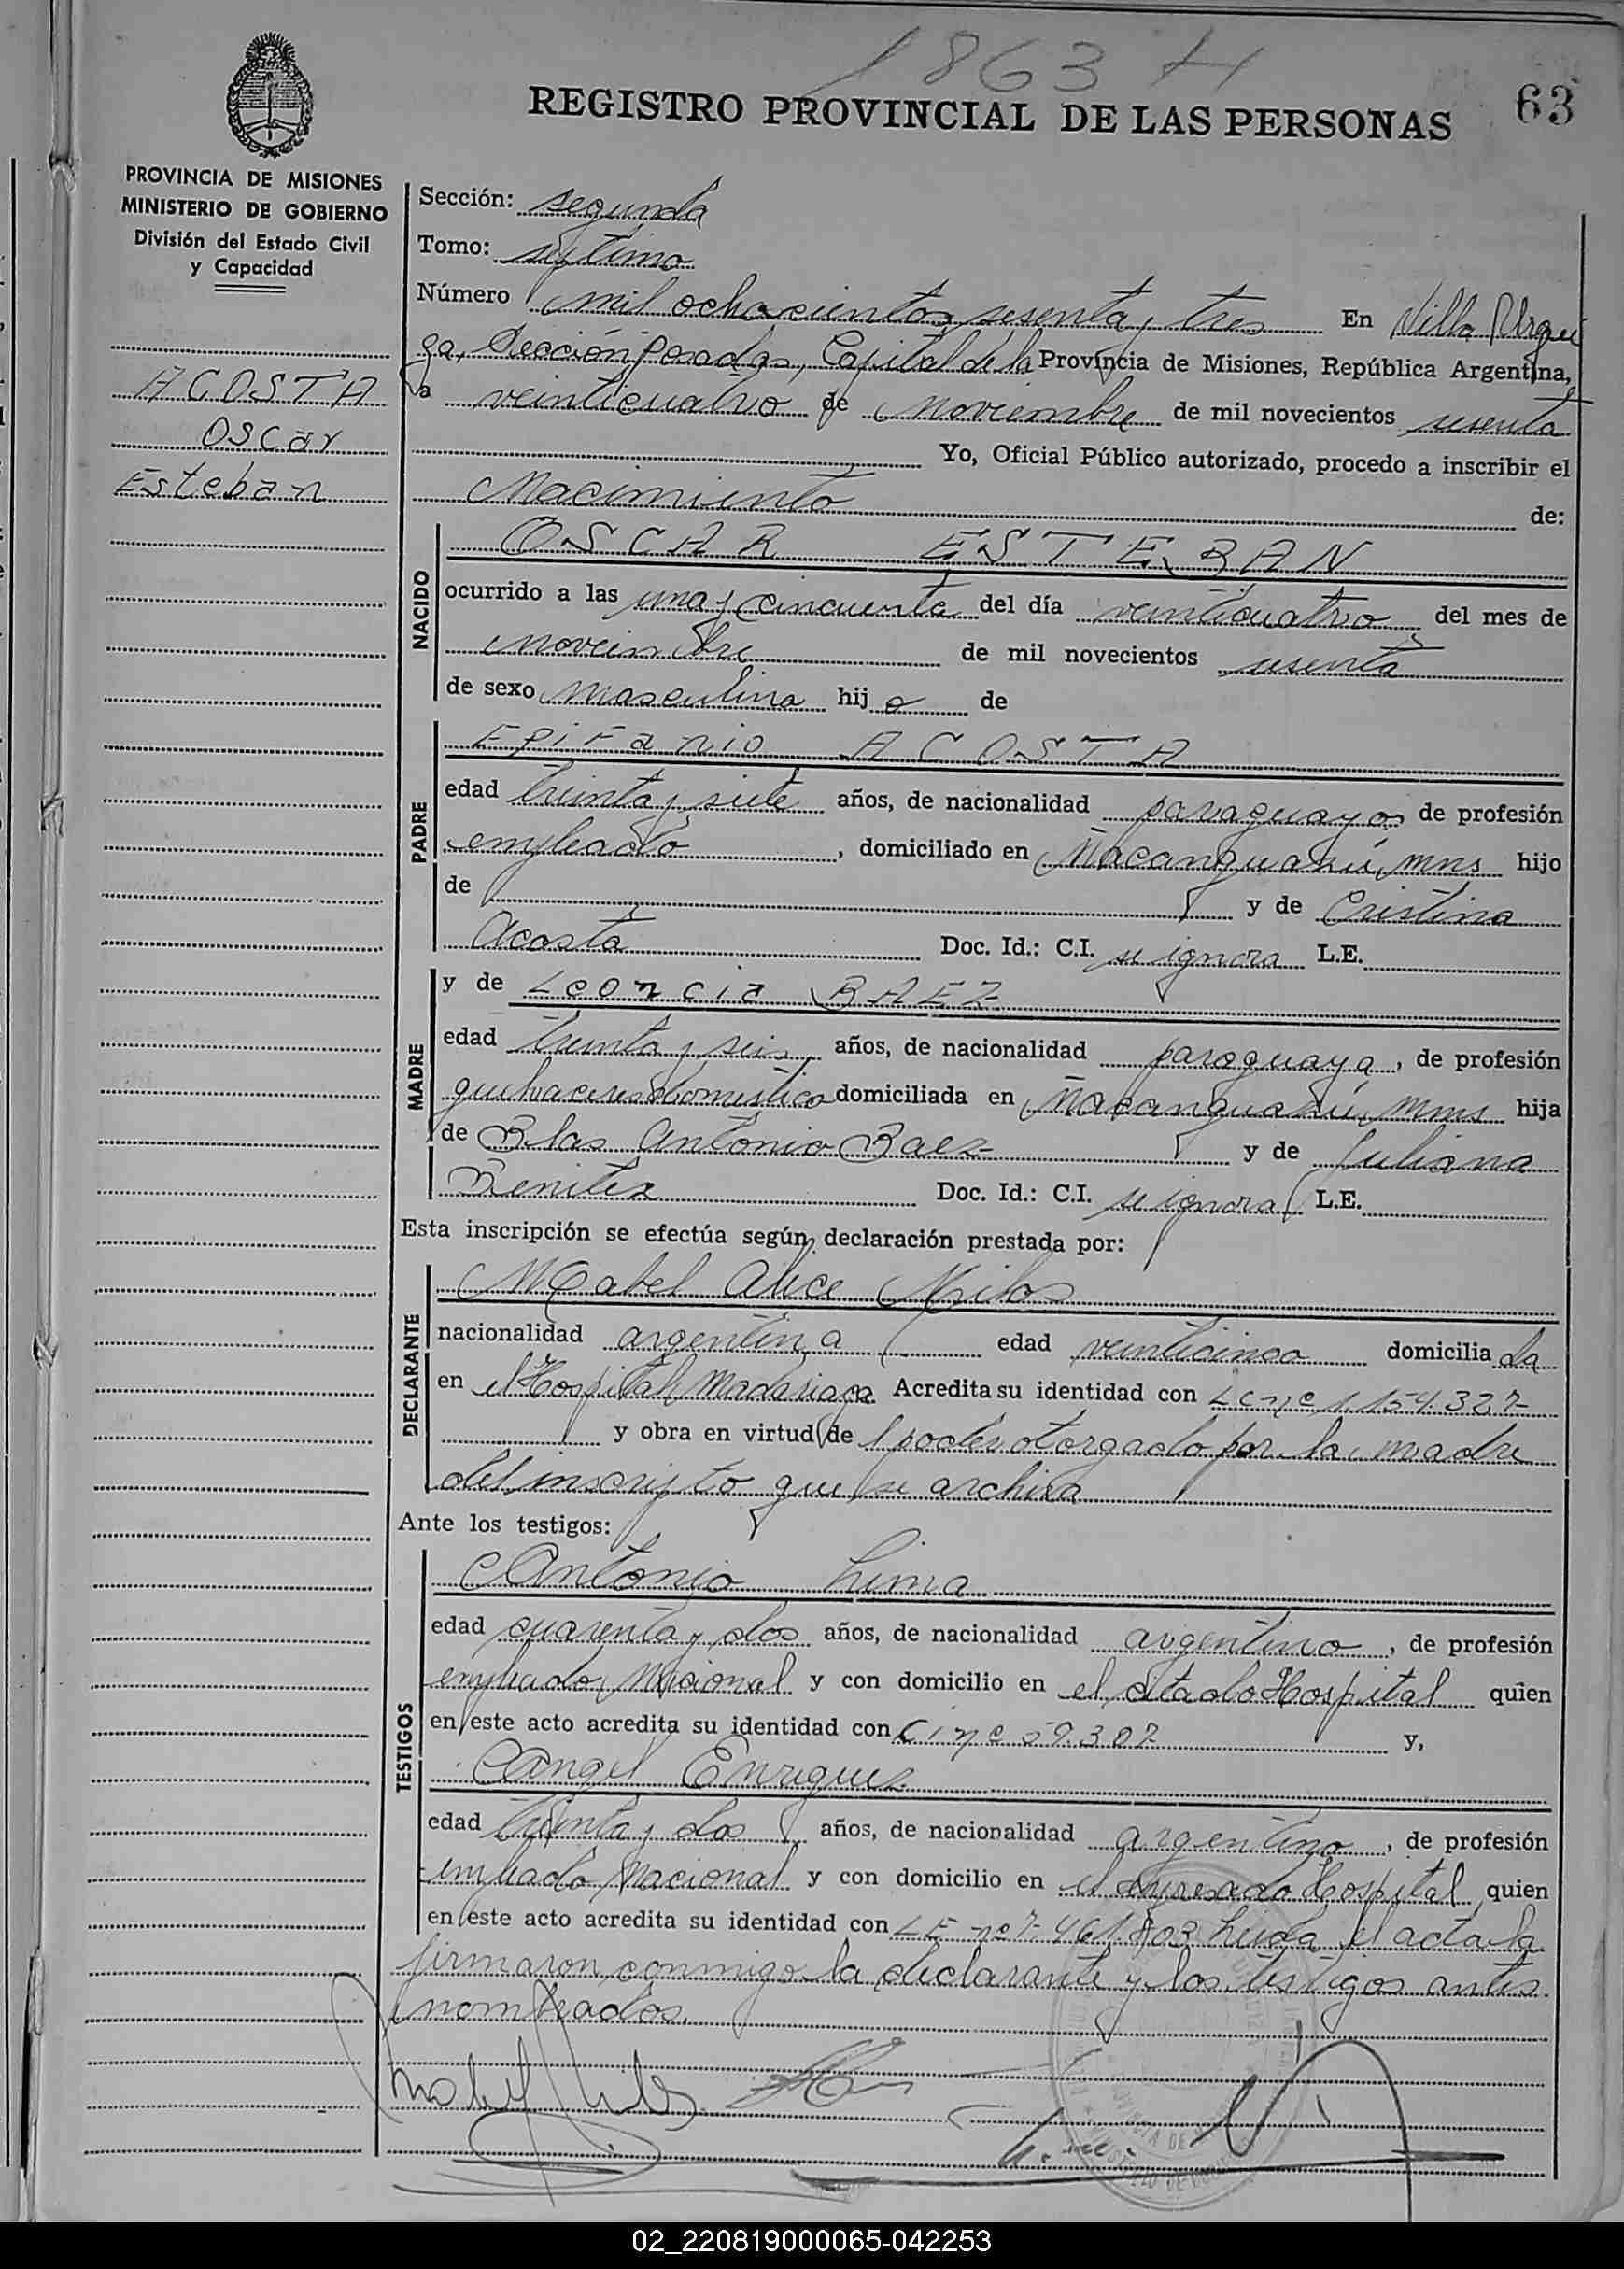 1863 H
REGISTRO PROVINCIAL DE LAS PERSONAS
63
PROVINCIA DE MISIONES
MINISTERIO DE GOBIERNO
División del Estado Civil
y Capacidad
ACOSTA
Oscar
Esteban
Sección: segunda
Tomo: septimo
Número mil ochocientos sesenta y tres En Villa Urqui
za, Sección Posadas, Capital de la Provincia de Misiones, República Argentina,
a veinticuatro de noviembre de mil novecientos sesenta
Yo, Oficial Público autorizado, procedo a inscribir el
Nacimiento de:
NACIDO
OSCAR ESTEBAN
ocurrido a las una y cincuenta del día veinticuatro del mes de
noviembre de mil novecientos sesenta
de sexo masculino hijo de
PADRE
Epifanio ACOSTA
edad treinta y siete años, de nacionalidad paraguayo, de profesión
empleado, domiciliado en Ñacanguazú, mns hijo
de y de Cristina
Acosta Doc. Id.: C.I. se ignora L.E.
MADRE
y de Leoncia BAEZ
edad treinta y seis años, de nacionalidad paraguaya, de profesión
quehaceres domestico domiciliada en Ñacanguazú, mns hija
de Blas Antonio Baez y de Juliana
Benitez Doc. Id.: C.I. se ignora L.E.
Esta inscripción se efectúa según declaración prestada por:
DECLARANTE
Mabel Alice
nacionalidad argentina edad veinticinco domiciliada
en el Hospital Madariaga Acredita su identidad con LC nº 1.154.327
y obra en virtud de poder otorgado por la madre
del inscripto que se archiva
Ante los testigos:
TESTIGOS
Antonio Lima
edad cuarenta y dos años, de nacionalidad argentino, de profesión
empleado Nacional y con domicilio en el citado Hospital quien
en este acto acredita su identidad con CI nº 59.307 y,
Angel Enriquez
edad treinta y dos años, de nacionalidad argentino, de profesión
empleado Nacional y con domicilio en el expresado Hospital quien
en este acto acredita su identidad con LE nº 7.461.803 Leida el acta la
firmaron conmigo la declarante y los testigos antes
nombrados.
02_220819000065-042253